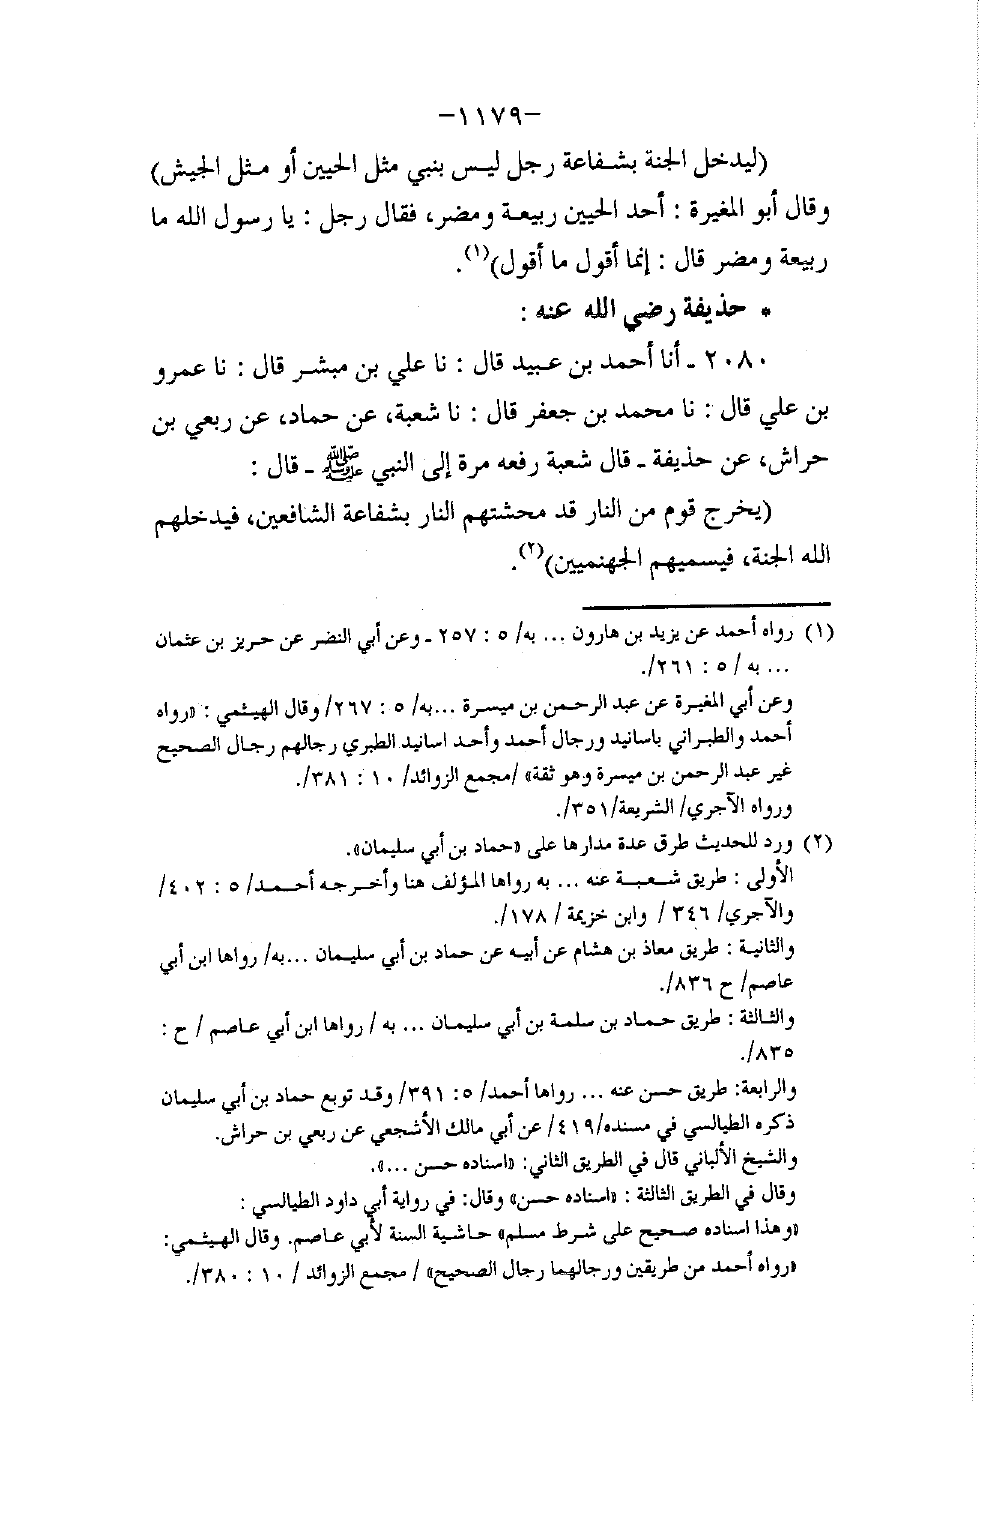 -١١٧٩-
(ليدخل الجنة بشفاعة رجل ليس بنبي مثل الحيين أو مثل الجيش)
وقال أبو المغيرة : أحد الحيين ربيعة ومضر، فقال رجل : يا رسول الله ما
ربيعة ومضر قال : إنما أقول ما أقول)(١).
* حذيفة رضي الله عنه :
٢٠٨٠ ـ أنا أحمد بن عبيد قال : نا علي بن مبشر قال : نا عمرو
بن علي قال : نا محمد بن جعفر قال : نا شعبة، عن حماد، عن ربعي بن
حراش، عن حذيفة ـ قال شعبة رفعه مرة إلى النبي ﷺ ـ قال :
(يخرج قوم من النار قد محشتهم النار بشفاعة الشافعين، فيدخلهم
الله الجنة، فيسميهم الجهنميين)(٢).
(١) رواه أحمد عن يزيد بن هارون ... به/ ٥ : ٢٥٧ ـ وعن أبي النضر عن حريز بن عثمان
... به / ٥ : ٢٦١/.
وعن أبي المغيرة عن عبد الرحمن بن ميسرة ...به/ ٥ : ٢٦٧/ وقال الهيثمي : «رواه
أحمد والطبراني باسانيد ورجال أحمد وأحد اسانيد الطبري رجالهم رجال الصحيح
غير عبد الرحمن بن ميسرة وهو ثقة» /مجمع الزوائد/ ١٠ : ٣٨١/.
ورواه الآجري/ الشريعة/٣٥١/.
(٢) ورد للحديث طرق عدة مدارها على «حماد بن أبي سليمان».
الأولى : طريق شعبة عنه ... به رواها المؤلف هنا وأخرجه أحمد/ ٥ : ٤٠٢/
والآجري/ ٣٤٦ / وابن خزيمة / ١٧٨/.
والثانية : طريق معاذ بن هشام عن أبيه عن حماد بن أبي سليمان ...به/ رواها ابن أبي
عاصم/ ح ٨٣٦/.
والثالثة : طريق حماد بن سلمة بن أبي سليمان ... به / رواها ابن أبي عاصم / ح :
٨٣٥/.
والرابعة: طريق حسن عنه ... رواها أحمد/ ٥: ٣٩١/ وقد توبع حماد بن أبي سليمان
ذكره الطيالسي في مسنده/٤١٩/ عن أبي مالك الأشجعي عن ربعي بن حراش.
والشيخ الألباني قال في الطريق الثاني: «اسناده حسن ...».
وقال في الطريق الثالثة : «اسناده حسن» وقال: في رواية أبي داود الطيالسي :
«وهذا اسناده صحيح على شرط مسلم» حاشية السنة لأبي عاصم. وقال الهيثمي:
«رواه أحمد من طريقين ورجالهما رجال الصحيح» / مجمع الزوائد / ١٠ : ٣٨٠/.